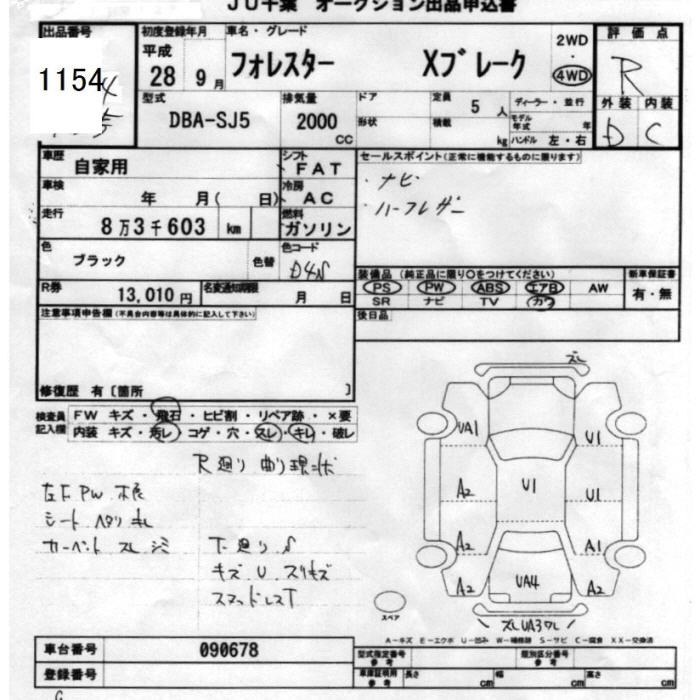 JU千葉 オークション出品申込書
出品番号
1154
初度登録年月
平成
28 9月
車名・グレード
フォレスター Xブレーク
2WD
4WD
評価点
R
外装 内装
D C
型式
DBA-SJ5
排気量
2000
CC
ドア
形状
定員
5 人
積載
kg
ディーラー・並行
モデル年式 年
ハンドル 左・右
車歴
自家用
シフト
FAT
車検
年 月( 日)
冷房
AC
走行
8万3千603 km
燃料
ガソリン
色
ブラック
色替
色コード
D4S
R券
13,010円
名変通知期限
月 日
セールスポイント(正常に機能するものに限ります)
・ナビ
・ハーフレザー
装備品(純正品に限り○をつけてください)
PS PW ABS エアB AW
SR ナビ TV カワ
新車保証書
有・無
後日品
注意事項申告欄(不具合内容等は具体的に記入して下さい)
修復歴 有〔箇所 〕
検査員記入欄
FW キズ・飛石・ヒビ割・リペア跡・×要
内装 キズ・汚レ・コゲ・穴・スレ・キレ・破レ
R廻り 曲り
左F PW
シート ヘタリ
カーペット スレ シミ
下廻り S
キズ U スリキズ
スレ
UA1
U1
A2
U1
U1
A2
A1
A2
UA4
A2
スペア
スレUA3ワレ
A-キズ E-エクボ U-凹み W-補修跡 S-サビ C-腐食 XX-交換済
車台番号
090678
登録番号
型式指定番号
参考
類別区分番号
参考
車庫証明用
参考
長さ cm
幅 cm
高さ cm